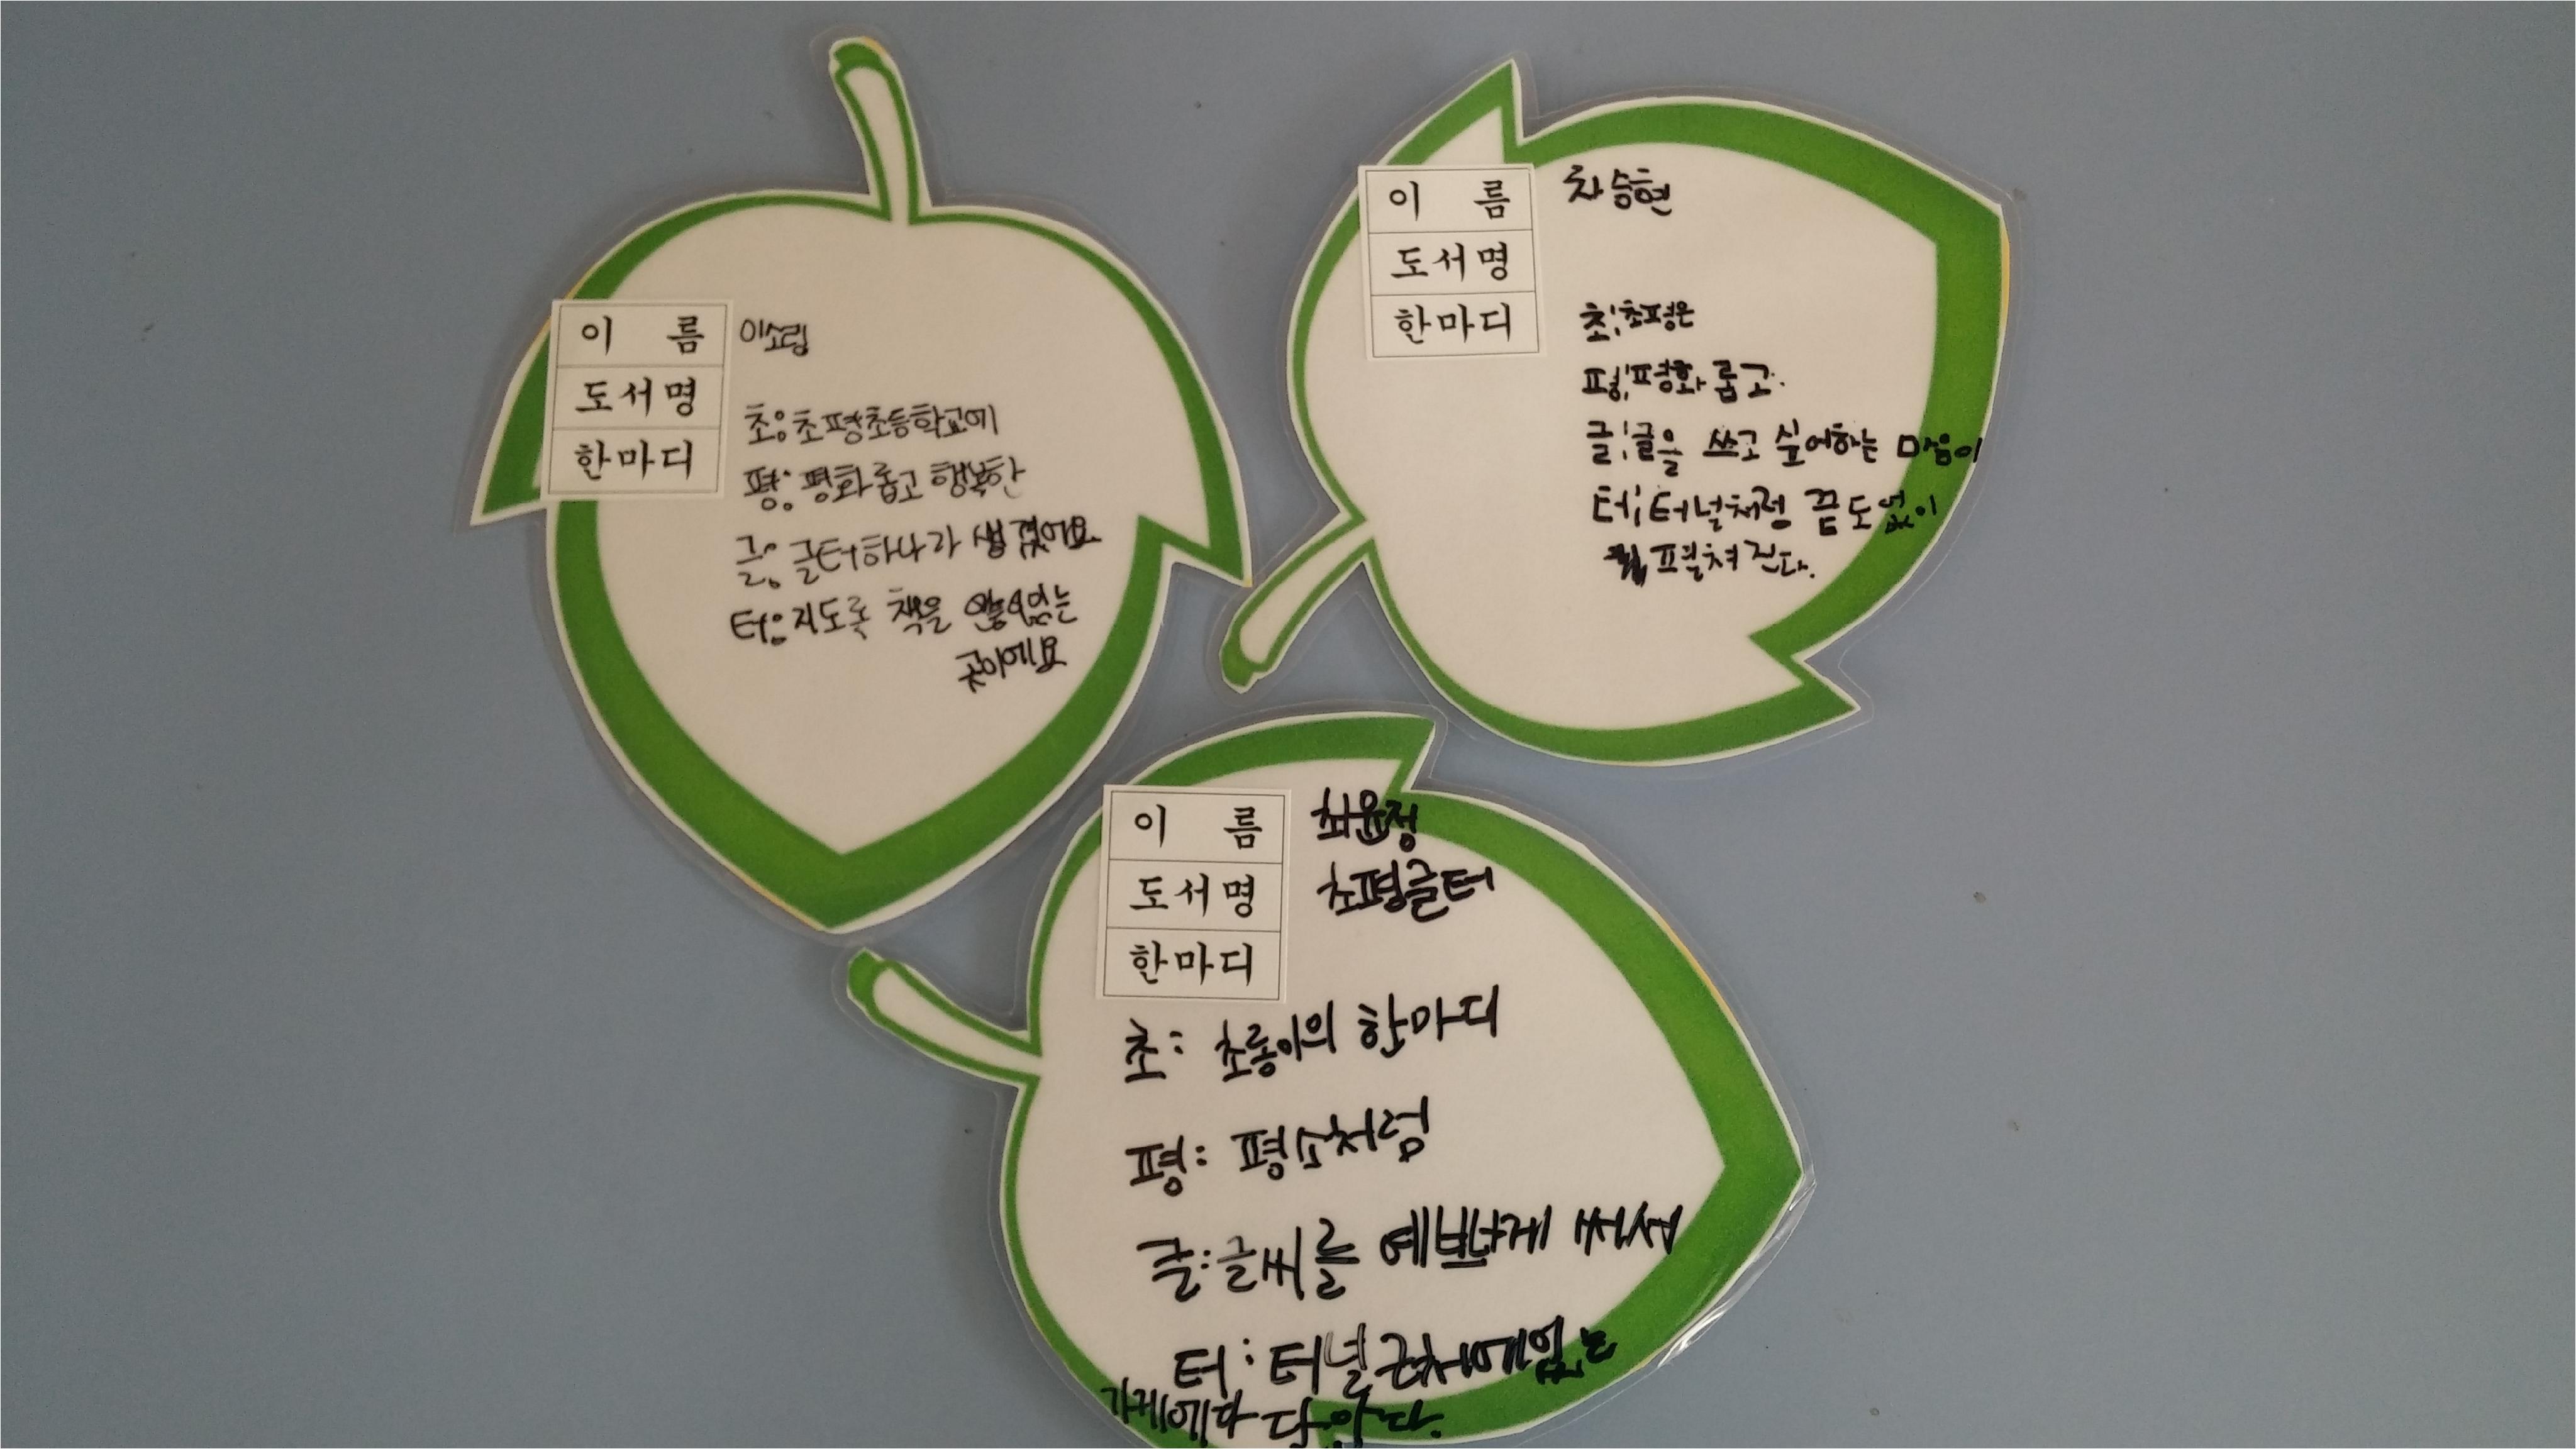 이 름 이소림
도서명
한마디
초: 초평초등학교에
평: 평화롭고 행복한
글: 글터하나가 생겼어요
터: 지도록 책을 있는
곳이에요
이 름 차승현
도서명
한마디
초: 초평은
평: 평화롭고.
글: 글을 쓰고 싶어하는 마음이
터: 터널처럼 끝도없이
펼쳐진다.
이 름 최윤정
도서명 초평글터
한마디
초: 초롱이의 한마디
평: 평소처럼
글: 글씨를 예쁘게 써서
터: 터널근처에있는
가게에다